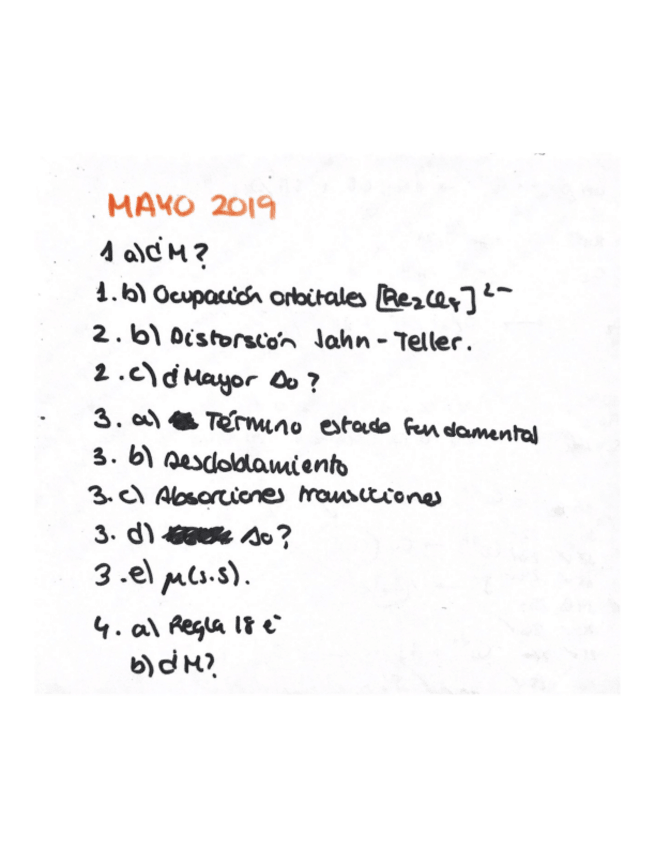 MAYO 2019
1 a) ¿M?
1. b) Ocupación orbitales [Re₂Cl₈]²⁻
2. b) Distorsión Jahn - Teller.
2. c) ¿Mayor Δo?
3. a) Término estado fundamental
3. b) Desdoblamiento
3. c) Absorciones transiciones
3. d) Δo?
3. e) μ(s.s).
4. a) Regla 18 e⁻
b) ¿M?